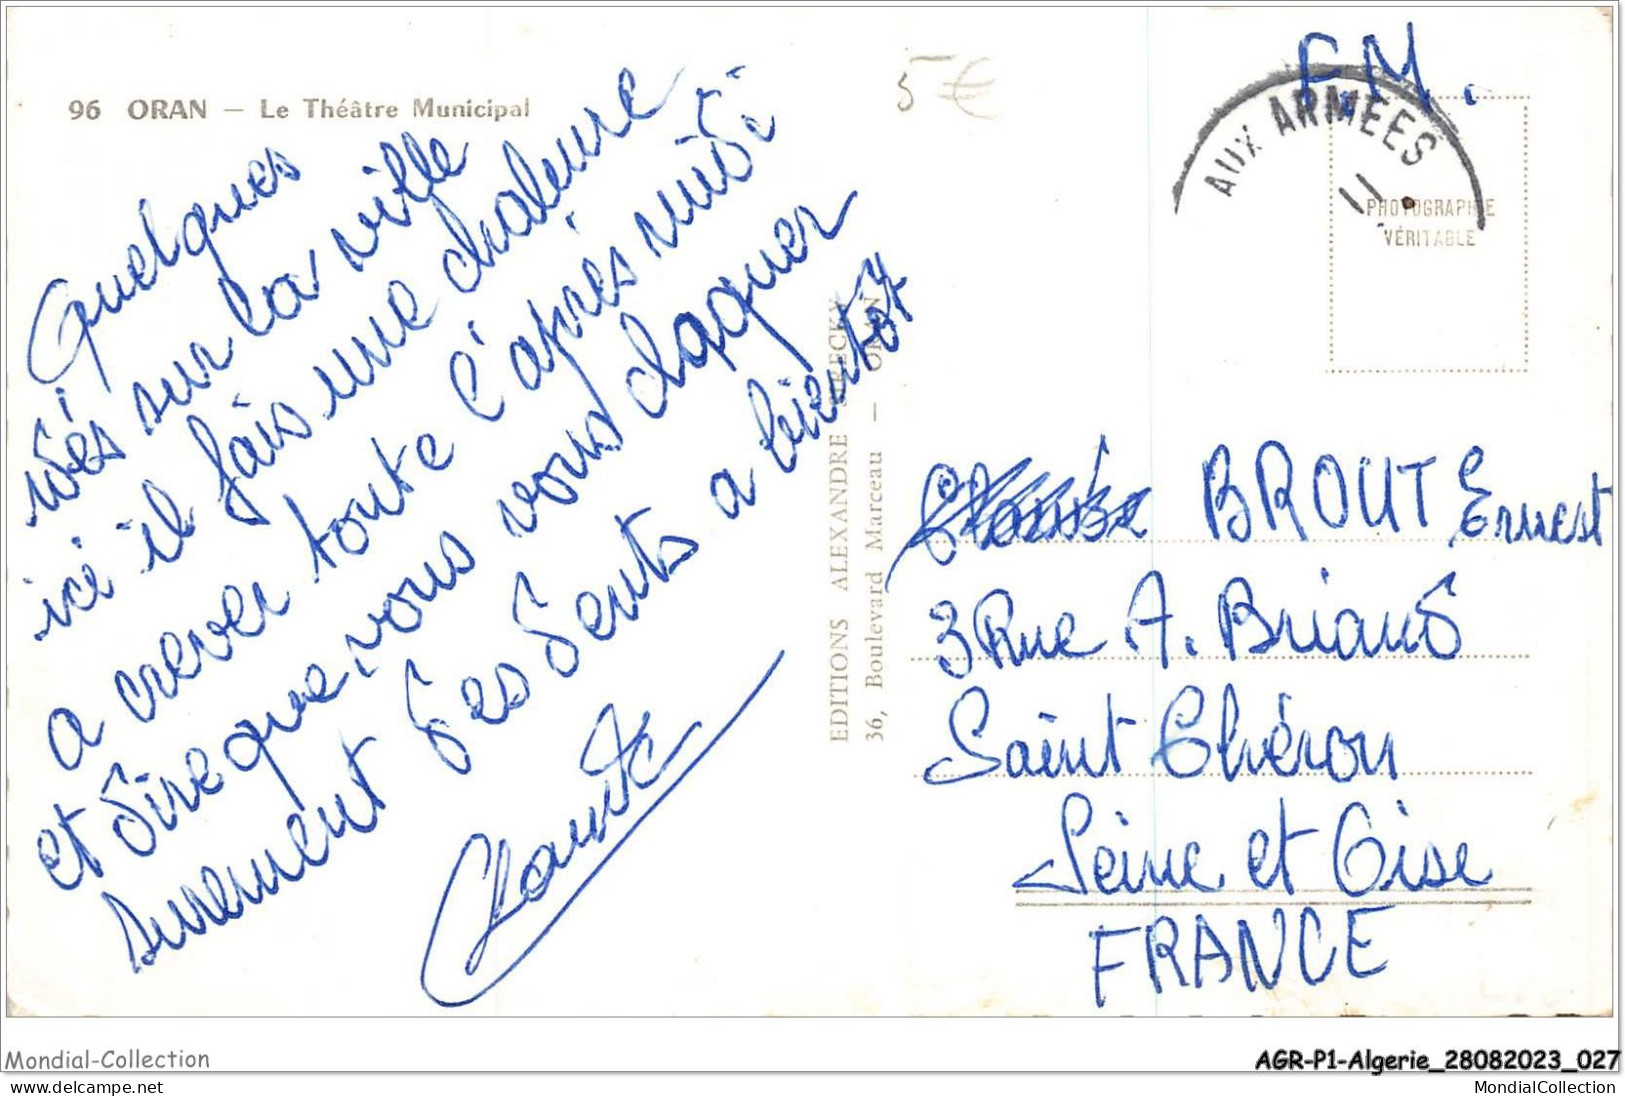 96 ORAN — Le Théâtre Municipal
Quelques
vues sur la ville
ici il fais une chaleure
a crever toute l'après midi
et dire que vous vous claquer
surement des dents a bientot
Claude
5€
F.M.
AUX ARMÉES
11
PHOTOGRAPHIE
VÉRITABLE
EDITIONS ALEXANDRE
36, Boulevard Marceau — ORAN
BROUT Ernest
3 Rue A. Briand
Saint Chéron
Seine et Oise
FRANCE
Mondial-Collection
AGR-P1-Algerie_28082023_027
www.delcampe.net
MondialCollection